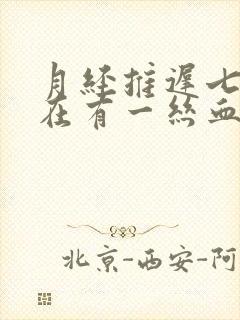 月经推迟七
在有一丝血
北京-西安-阿